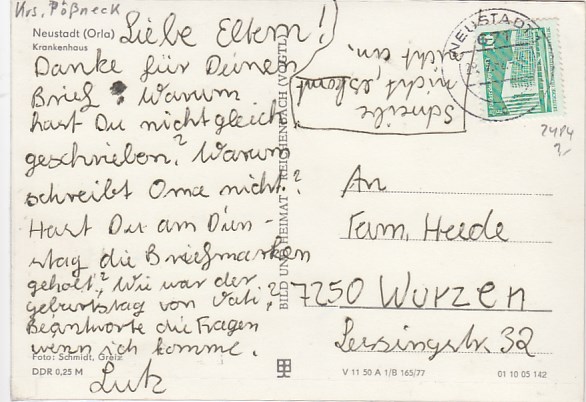 Krs. Pößneck
Neustadt (Orla)
Krankenhaus
Liebe Eltern!
Danke für Deinen
Brief. Warum
hast Du nicht gleich
geschrieben? Warum
schreibt Oma nicht?
Hast Du am Dien-
stag die Briefmarken
geholt? Wie war der
geburtstag von Vati?
Beantworte die Fragen
wenn ich komme.
Lutz
Schreibe
nicht, es kommt
nicht an.
NEUSTADT
An
Fam. Heede
7250 Wurzen
Lessingstr. 32
BILD UND HEIMAT REICHENBACH (VOGTL)
Foto: Schmidt, Greiz
DDR 0,25 M
V 11 50 A 1/B 165/77
01 10 05 142
2484